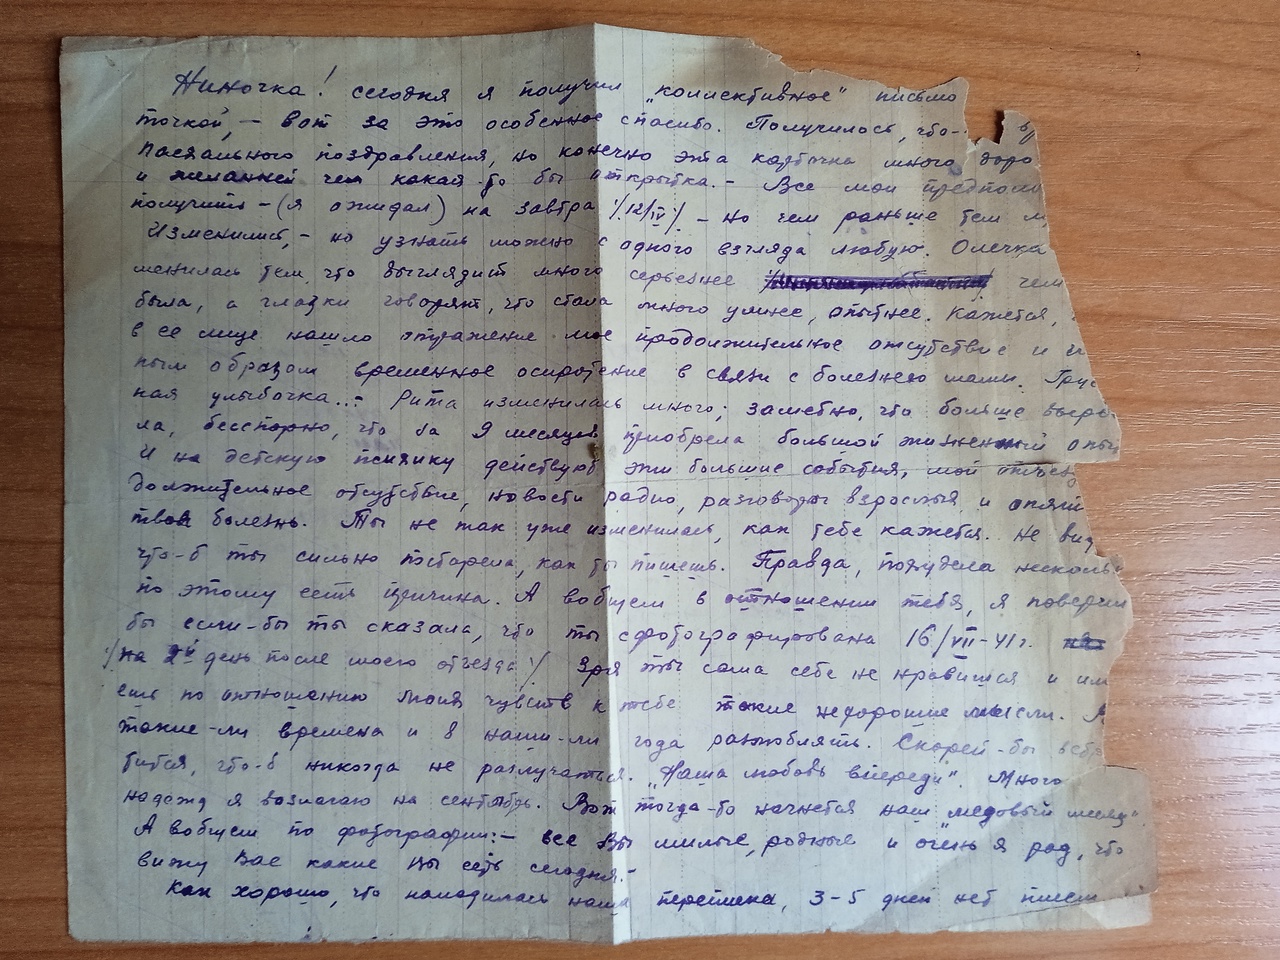 Ниночка! сегодня я получил „коллективное" письмо
точкой, – вот за это особенное спасибо. Получилось, что-
пасхального поздравления, но конечно эта карточка много доро
и желанней чем какая то бы открытка. – Все мои предполо
получить – (я ожидал) на завтра /12/IV/ – но чем раньше тем
Изменились, – но узнать можно с одного взгляда любую. Олечка
менилась тем, что выглядит много серьезнее чем
была, а глазки говорят, что стала много умнее, опытнее. Кажется,
в ее лице нашло отражение мое продолжительное отсутствие и
ным образом временное осиротение в связи с болезнею мамы. Грус
ная улыбочка... – Рита изменилась много; заметно, что больше выро
ла, бесспорно, что за 9 месяцев приобрела большой жизненный опы
И на детскую психику действуют эти большие события, мой отъезд
должительное отсутствие, новости радио, разговоры взрослых и опять
твоя болезнь. Ты не так уже изменилась, как тебе кажется. Не ви
что-б ты сильно постарела, как ты пишешь. Правда, похудела несколь
по этому есть причина. А вобщем в отношении тебя, я поверил
бы если-бы ты сказала, что ты сфотографирована 16/VII-41 г.
/на 2й день после моего отъезда/ Зря ты сама себе не нравишся и им
ешь по отношению моих чувств к тебе такие нехорошие мысли.
такие-ли времена и в наши-ли года разлюблять. Скорей-бы встре
титься, что-б никогда не разлучаться. „Наша любовь впереди". Много
надежд я возлагаю на сентябрь. Вот тогда-то начнется наш „медовый месяц".
А вобщем по фотографии: – все Вы милые, родные и очень я рад, что
вижу Вас какие Вы есть сегодня. –
Как хорошо, что наладилась наша переписка, 3-5 дней нет писем